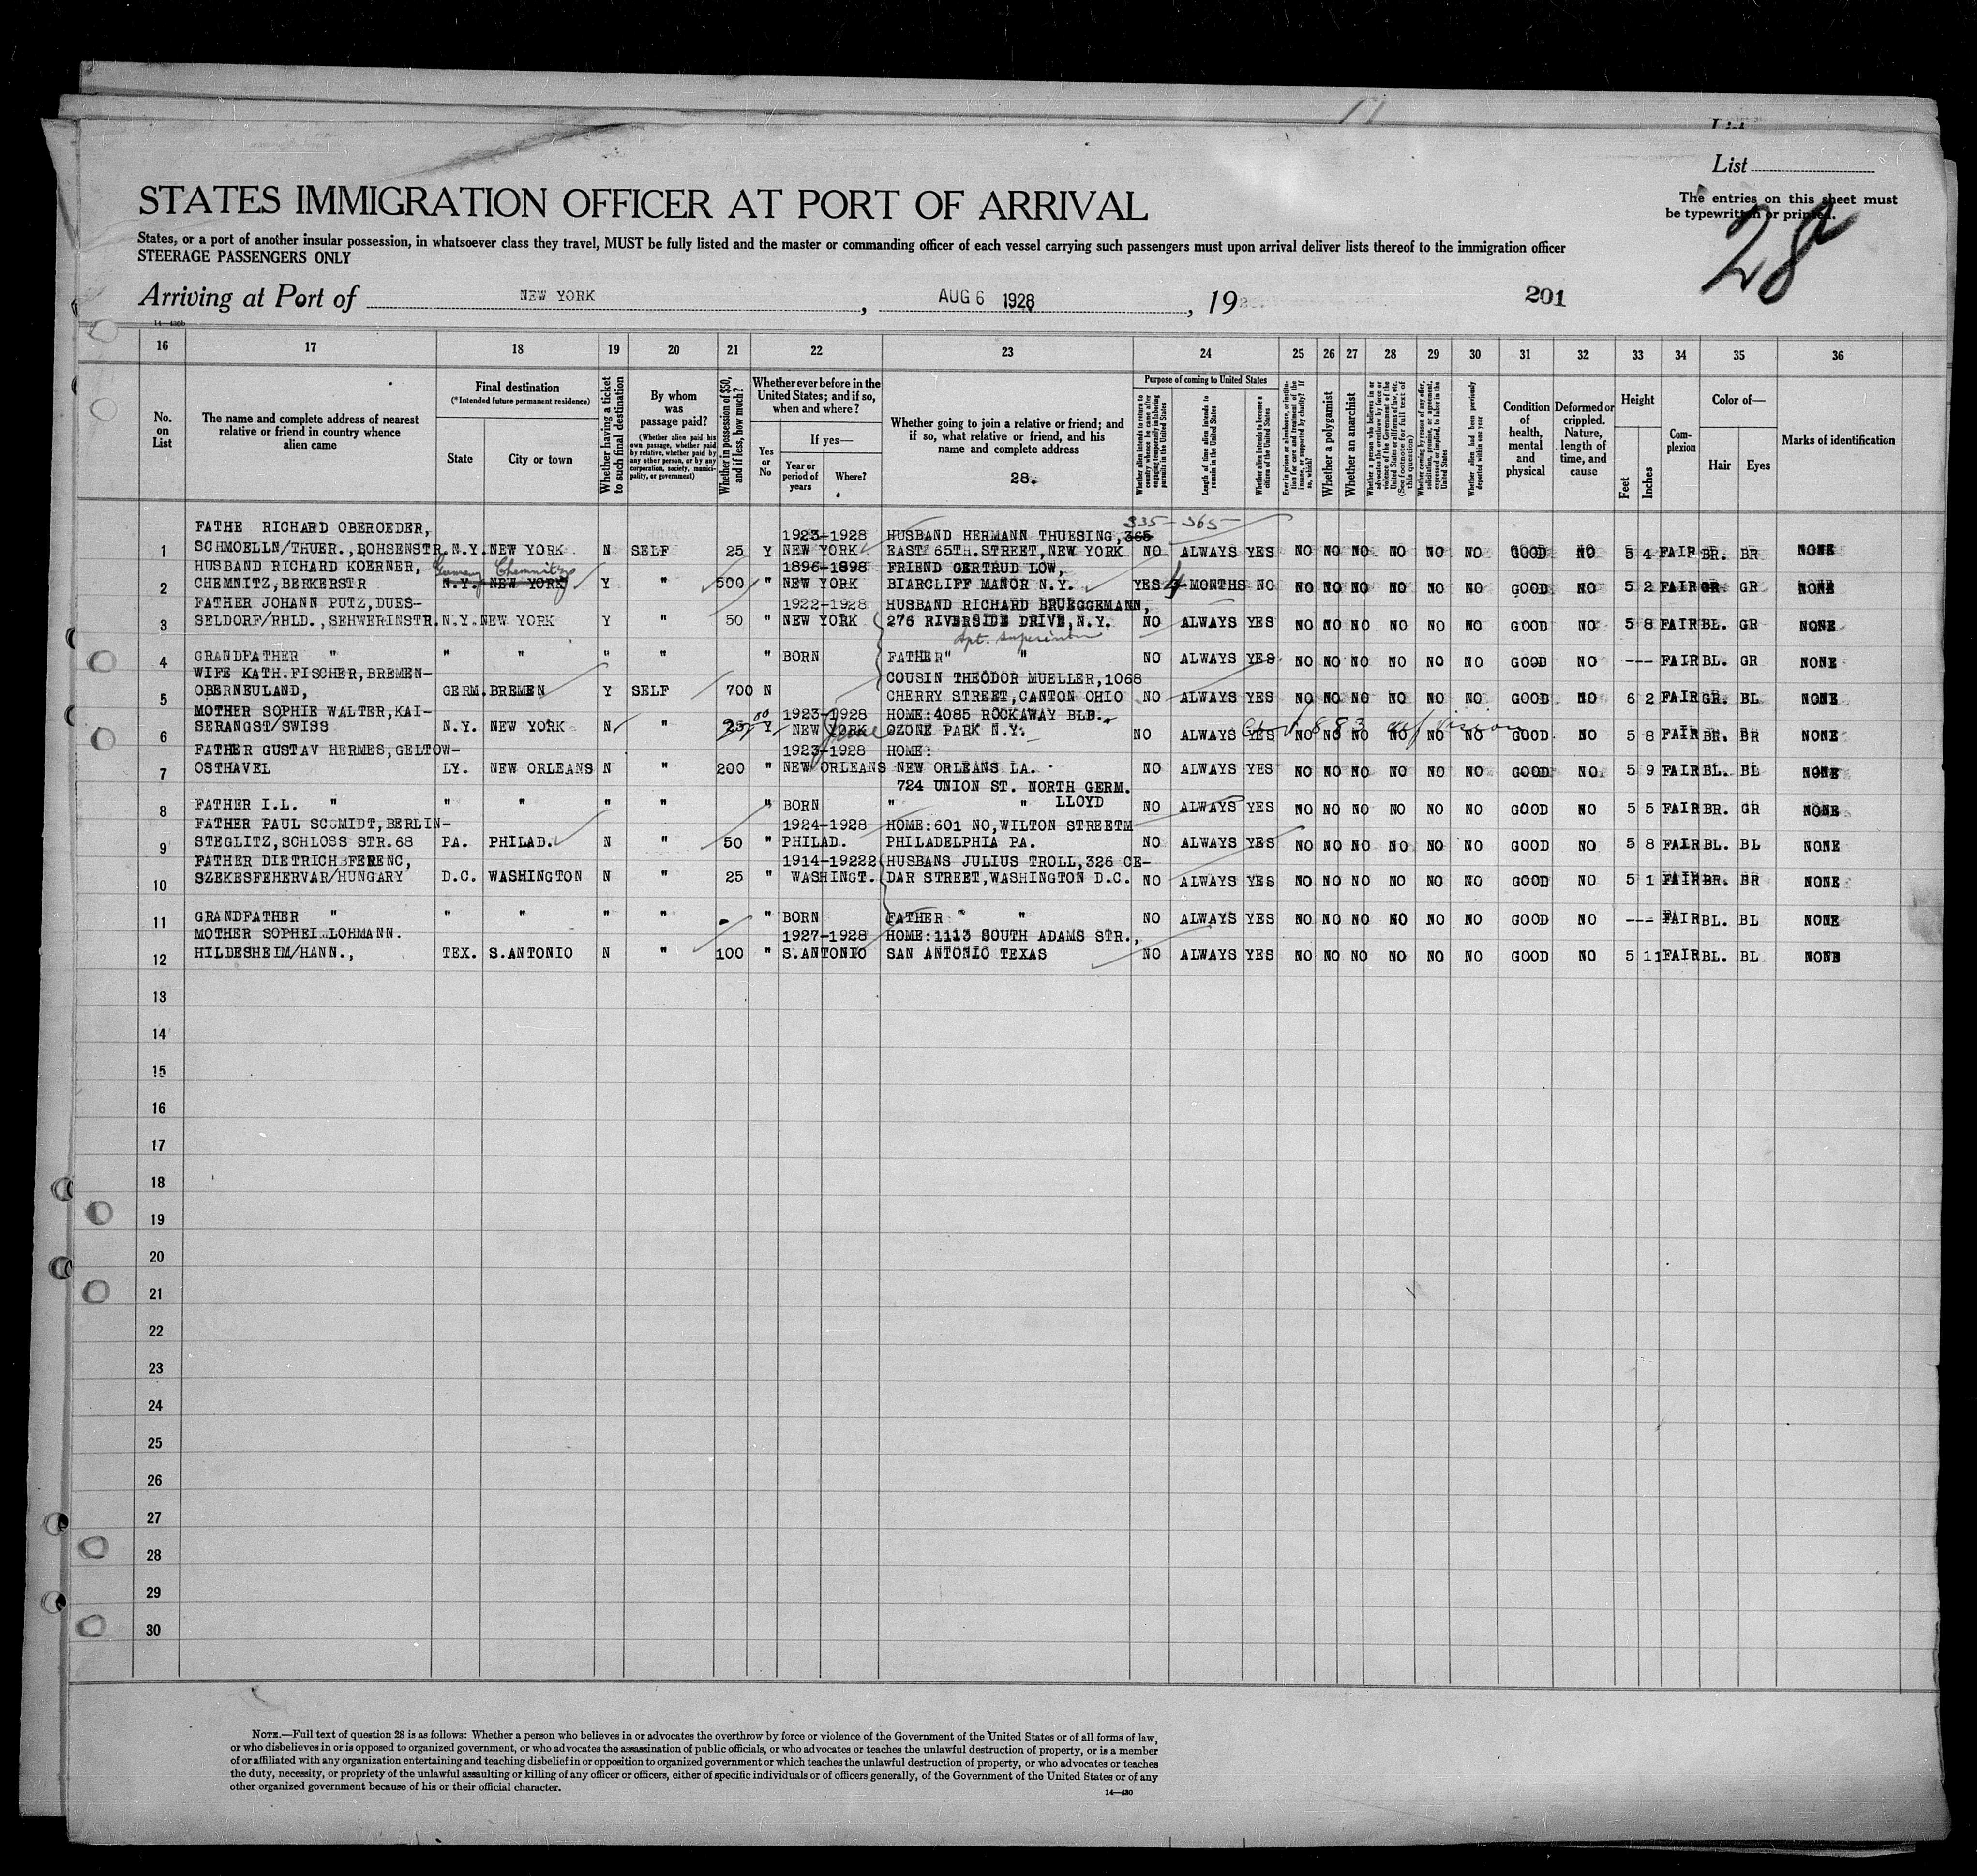 List
STATES IMMIGRATION OFFICER AT PORT OF ARRIVAL
The entries on this sheet must
be typewritten or printed.
28
States, or a port of another insular possession, in whatsoever class they travel, MUST be fully listed and the master or commanding officer of each vessel carrying such passengers must upon arrival deliver lists thereof to the immigration officer
STEERAGE PASSENGERS ONLY
Arriving at Port of NEW YORK , AUG 6 1928 , 19 201
14—430b
16 17 18 19 20 21 22 23 24 25 26 27 28 29 30 31 32 33 34 35 36
No. on List
The name and complete address of nearest relative or friend in country whence alien came
Final destination
(*Intended future permanent residence)
State
City or town
Whether having a ticket to such final destination
By whom was passage paid?
(Whether alien paid his own passage, whether paid by relative, whether paid by any other person, or by any corporation, society, municipality, or government)
Whether in possession of $50, and if less, how much?
Whether ever before in the United States; and if so, when and where?
Yes or No
If yes—
Year or period of years
Where?
Whether going to join a relative or friend; and if so, what relative or friend, and his name and complete address
28.
Purpose of coming to United States
Whether alien intends to return to country whence he came after engaging temporarily in laboring pursuits in the United States
Length of time alien intends to remain in the United States
Whether alien intends to become a citizen of the United States
Ever in prison or almshouse, or institution for care and treatment of the insane, or supported by charity? If so, which?
Whether a polygamist
Whether an anarchist
Whether a person who believes in or advocates the overthrow by force or violence of the Government of the United States or all forms of law, etc. (See footnote for full text of this question)
Whether coming by reason of any offer, solicitation, promise, or agreement, expressed or implied, to labor in the United States
Whether alien had been previously deported within one year
Condition of health, mental and physical
Deformed or crippled. Nature, length of time, and cause
Height
Feet
Inches
Complexion
Color of—
Hair
Eyes
Marks of identification
335 - 365
FATHE RICHARD OBEROEDER, 1923-1928 HUSBAND HERMANN THUESING, 365
1 SCHMOELLN/THUER., BOHSENSTR. N.Y. NEW YORK N SELF 25 Y NEW YORK EAST 65TH. STREET, NEW YORK NO ALWAYS YES NO NO NO NO NO NO GOOD NO 5 4 FAIR BR. BR NONE
HUSBAND RICHARD KOERNER, Germany Chemnitz 1896-1898 FRIEND GERTRUD LOW,
2 CHEMNITZ, BERKERSTR N.Y. NEW YORK Y " 500 " NEW YORK BIARCLIFF MANOR N.Y. YES 4 MONTHS NO NO NO NO NO NO NO GOOD NO 5 2 FAIR GR GR NONE
FATHER JOHANN PUTZ, DUES- 1922-1928 HUSBAND RICHARD BRUEGGEMANN,
3 SELDORF/RHLD., SEHWERINSTR. N.Y. NEW YORK Y " 50 " NEW YORK 276 RIVERSIDE DRIVE, N.Y. NO ALWAYS YES NO NO NO NO NO NO GOOD NO 5 8 FAIR BL. GR NONE
4 GRANDFATHER " " " " " " BORN FATHER " " NO ALWAYS YES NO NO NO NO NO NO GOOD NO --- FAIR BL. GR NONE
WIFE KATH. FISCHER, BREMEN- COUSIN THEODOR MUELLER, 1068
5 OBERNEULAND, GERM. BREMEN Y SELF 700 N CHERRY STREET, CANTON OHIO NO ALWAYS YES NO NO NO NO NO NO GOOD NO 6 2 FAIR GR. BL NONE
MOTHER SOPHIE WALTER, KAI- 1923-1928 HOME: 4085 ROCKAWAY BLB.,
6 SERANGST/SWISS N.Y. NEW YORK N " 25 Y NEW YORK OZONE PARK N.Y. NO ALWAYS YES NO NO NO NO NO NO GOOD NO 5 8 FAIR BR. BR NONE
FATHER GUSTAV HERMES, GELTOW- 1923-1928 HOME:
7 OSTHAVEL LY. NEW ORLEANS N " 200 " NEW ORLEANS NEW ORLEANS LA. NO ALWAYS YES NO NO NO NO NO NO GOOD NO. 5 9 FAIR BL. BL NONE
724 UNION ST. NORTH GERM.
8 FATHER I.L. " " " " " " BORN " " LLOYD NO ALWAYS YES NO NO NO NO NO NO GOOD NO 5 5 FAIR BR. GR NONE
FATHER PAUL SCGMIDT, BERLIN- 1924-1928 HOME: 601 NO, WILTON STREETM
9 STEGLITZ, SCHLOSS STR. 68 PA. PHILAD. N " 50 " PHILAD. PHILADELPHIA PA. NO ALWAYS YES NO NO NO NO NO NO GOOD NO 5 8 FAIR BL. BL NONE
FATHER DIETRICH FERENC, 1914-19222 HUSBANS JULIUS TROLL, 326 CE-
10 SZEKESFEHERVAR/HUNGARY D.C. WASHINGTON N " 25 " WASHINGT. DAR STREET, WASHINGTON D.C. NO ALWAYS YES NO NO NO NO NO NO GOOD NO 5 1 FAIR BR. BR NONE
11 GRANDFATHER " " " " " - " BORN FATHER " " NO ALWAYS YES NO NO NO NO NO NO GOOD NO --- FAIR BL. BL NONE
MOTHER SOPHEI LOHMANN. 1927-1928 HOME: 1113 SOUTH ADAMS STR.,
12 HILDESHEIM/HANN., TEX. S.ANTONIO N " 100 " S.ANTONIO SAN ANTONIO TEXAS NO ALWAYS YES NO NO NO NO NO NO GOOD NO 5 11 FAIR BL. BL NONE
13
14
15
16
17
18
19
20
21
22
23
24
25
26
27
28
29
30
NOTE.—Full text of question 28 is as follows: Whether a person who believes in or advocates the overthrow by force or violence of the Government of the United States or of all forms of law,
or who disbelieves in or is opposed to organized government, or who advocates the assassination of public officials, or who advocates or teaches the unlawful destruction of property, or is a member
of or affiliated with any organization entertaining and teaching disbelief in or opposition to organized government or which teaches the unlawful destruction of property, or who advocates or teaches
the duty, necessity, or propriety of the unlawful assaulting or killing of any officer or officers, either of specific individuals or of officers generally, of the Government of the United States or of any
other organized government because of his or their official character.
14—430